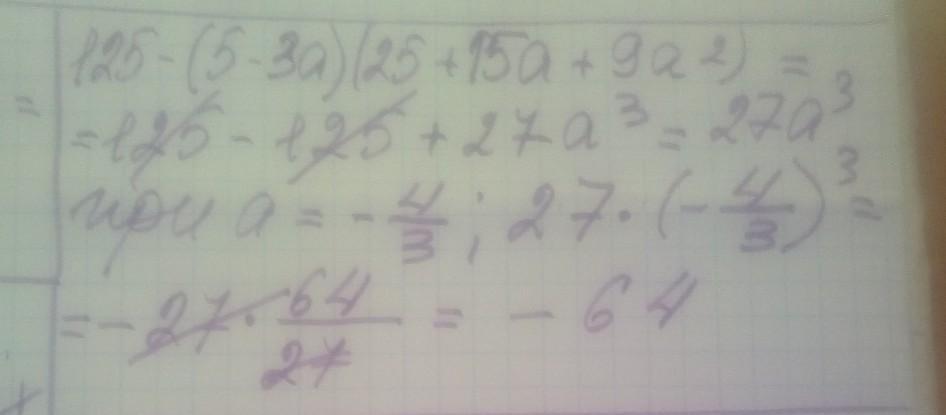 125-(5-3a)(25+15a+9a²)=
=
=125-125+27a³=27a³
при a=-4/3; 27·(-4/3)³=
=-27·64/27=-64